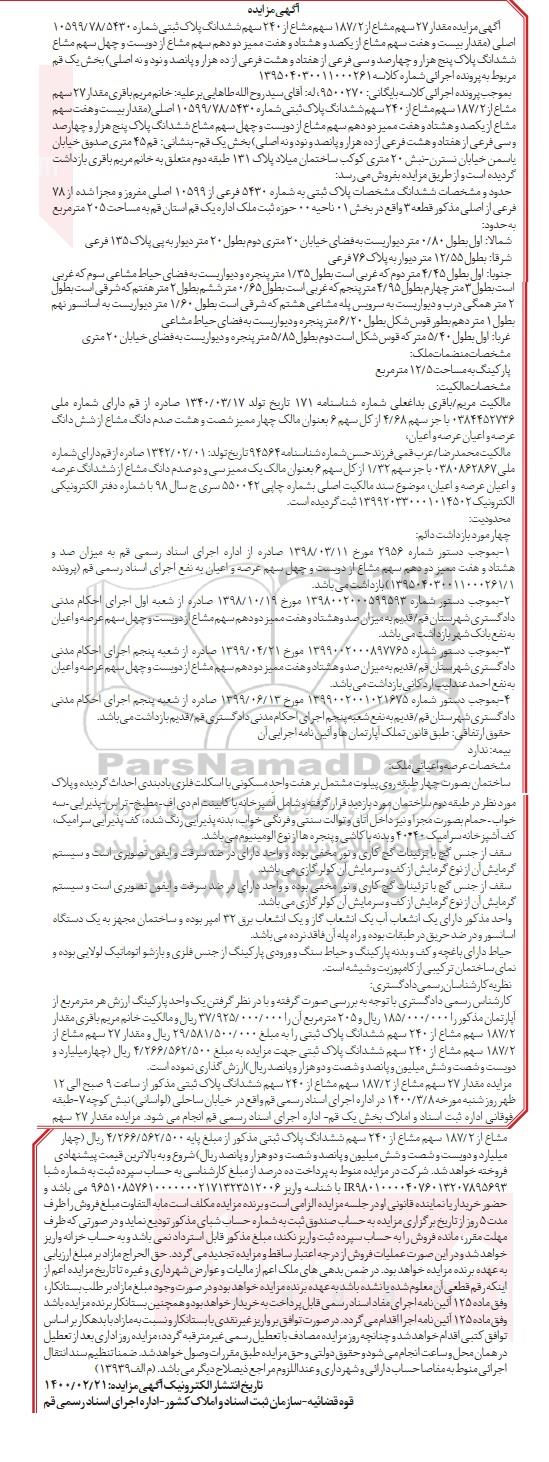 آگهی مزایده
آگهی مزایده مقدار ۲۷ سهم مشاع از ۱۸۷/۲ سهم مشاع از ۲۴۰ سهم ششدانگ پلاک ثبتی شماره ۱۰۵۹۹/۷۸/۵۴۳۰
اصلی (مقدار بیست و هفت سهم مشاع از یکصد و هشتاد و هفت ممیز دو دهم سهم مشاع از دویست و چهل سهم مشاع
ششدانگ پلاک پنج هزار و چهارصد و سی فرعی از هفتاد و هشت فرعی از ده هزار و پانصد و نود و نه اصلی) بخش یک قم
مربوط به پرونده اجرائی شماره کلاسه ۱۳۹۵۰۴۰۳۰۰۱۱۰۰۰۲۶۱
بموجب پرونده اجرائی کلاسه بایگانی: ۹۵۰۰۲۷۰ له: آقای سید روح الله طاهایی بر علیه: خانم مریم باقری مقدار ۲۷ سهم
مشاع از ۱۸۷/۲ سهم مشاع از ۲۴۰ سهم ششدانگ پلاک ثبتی شماره ۱۰۵۹۹/۷۸/۵۴۳۰ اصلی (مقدار بیست و هفت سهم
مشاع از یکصد و هشتاد و هفت ممیز دو دهم سهم مشاع از دویست و چهل سهم مشاع ششدانگ پلاک پنج هزار و چهارصد
و سی فرعی از هفتاد و هشت فرعی از ده هزار و پانصد و نود و نه اصلی) بخش یک قم - بنشانی: قم ۴۵ متری صدوق خیابان
یاسمن خیابان نسترن-نبش ۲۰ متری کوکب ساختمان میلاد پلاک ۱۳۱ طبقه دوم متعلق به خانم مریم باقری بازداشت
گردیده است و از طریق مزایده بفروش می رسد:
حدود و مشخصات ششدانگ مشخصات پلاک ثبتی به شماره ۵۴۳۰ فرعی از ۱۰۵۹۹ اصلی مفروز و مجزا شده از ۷۸
فرعی از اصلی مذکور قطعه ۳ واقع در بخش ۰۱ ناحیه ۰۰ حوزه ثبت ملک اداره یک قم استان قم به مساحت ۲۰۵ متر مربع
به حدود:
شمالا: اول بطول ۰/۸۰ متر دیواریست به فضای خیابان ۲۰ متری دوم بطول ۲۰ متر دیوار به پی پلاک ۱۳۵ فرعی
شرقا: بطول ۱۲/۵۵ متر دیوار به پلاک ۷۶ فرعی
جنوبا: اول بطول ۴/۴۵ متر دوم که غربی است بطول ۱/۳۵ متر پنجره و دیواریست به فضای حیاط مشاعی سوم که غربی
است بطول ۳ متر چهارم بطول ۴/۹۵ متر پنجم که غربی است بطول ۰/۶۵ متر ششم بطول ۲ متر هفتم که شرقی است بطول
۲ متر همگی درب و دیواریست به سرویس پله مشاعی هشتم که شرقی است بطول ۱/۶۰ متر دیواریست به آسانسور نهم
بطول ۱ متر دهم بطور قوس شکل بطول ۶/۲۰ متر پنجره و دیواریست به فضای حیاط مشاعی
غربا: اول بطول ۵/۴۰ متر که قوس شکل است دوم بطول ۵/۸۵ متر پنجره و دیواریست به فضای خیابان ۲۰ متری
مشخصات منضمات ملک:
پارکینگ به مساحت ۱۲/۵ متر مربع
مشخصات مالکیت:
مالکیت مریم/باقری بداغعلی شماره شناسنامه ۱۷۱ تاریخ تولد ۱۳۴۰/۰۳/۱۷ صادره از قم دارای شماره ملی
۰۳۸۴۴۵۲۷۳۶ با جز سهم ۴/۶۸ از کل سهم ۶ بعنوان مالک چهار ممیز شصت و هشت صدم دانگ مشاع از شش دانگ
عرصه و اعیان عرصه و اعیان،
مالکیت محمدرضا/عرب قمی فرزند حسن شماره شناسنامه ۹۴۵۶۴ تاریخ تولد: ۱۳۴۲/۰۲/۰۱ صادره از قم دارای شماره
ملی ۰۳۸۰۸۶۲۸۶۷ با جز سهم ۱/۳۲ از کل سهم ۶ بعنوان مالک یک ممیز سی و دو صدم دانگ مشاع از ششدانگ عرصه
و اعیان عرصه و اعیان، موضوع سند مالکیت اصلی بشماره چاپی ۵۵۰۰۴۲ سری ج سال ۹۸ با شماره دفتر الکترونیکی
الکترونیک ۱۳۹۹۲۰۳۳۰۰۰۱۰۱۴۵۰۲ ثبت گردیده است.
محدودیت:
چهار مورد بازداشت دائم:
۱-بموجب دستور شماره ۲۹۵۶ مورخ ۱۳۹۸/۰۳/۱۱ صادره از اداره اجرای اسناد رسمی قم به میزان صد و
هشتاد و هفت ممیز دو دهم سهم مشاع از دویست و چهل سهم عرصه و اعیان به نفع اجرای اسناد رسمی قم (پرونده
۱۳۹۵۰۴۰۳۰۰۱۱۰۰۰۲۶۱/۱) بازداشت می باشد.
۲-بموجب دستور شماره ۱۳۹۸۰۰۲۰۰۰۵۹۹۵۹۳ مورخ ۱۳۹۸/۱۰/۱۹ صادره از شعبه اول اجرای احکام مدنی
دادگستری شهرستان قم/قدیم به میزان صد و هشتاد و هفت ممیز دو دهم سهم مشاع از دویست و چهل سهم عرصه و اعیان
به نفع بانک شهر بازداشت می باشد.
۳-بموجب دستور شماره ۱۳۹۹۰۰۲۰۰۰۸۹۷۷۶۵ مورخ ۱۳۹۹/۰۴/۲۱ صادره از شعبه پنجم اجرای احکام مدنی
دادگستری شهرستان قم/قدیم به میزان صد و هشتاد و هفت ممیز دو دهم سهم مشاع از دویست و چهل سهم عرصه و اعیان
به نفع احمد عندلیب اردکانی بازداشت می باشد.
۴-بموجب دستور شماره ۱۳۹۹۰۰۲۰۰۱۰۲۱۶۷۵ مورخ ۱۳۹۹/۰۶/۱۳ صادره از شعبه پنجم اجرای احکام مدنی
دادگستری شهرستان قم/قدیم به نفع شعبه پنجم اجرای احکام مدنی دادگستری قم/قدیم بازداشت می باشد.
حقوق ارتفاقی: طبق قانون تملک آپارتمان ها و آئین نامه اجرایی آن
بیمه: ندارد
مشخصات عرصه و اعیانی ملک:
ساختمان بصورت چهار طبقه روی پیلوت مشتمل بر هفت واحد مسکونی با اسکلت فلزی بادبندی احداث گردیده و پلاک
مورد نظر در طبقه دوم ساختمان مورد بازدید قرار گرفته و شامل آشپزخانه با کابینت ام دی اف-مطبخ-تراس-پذیرایی-سه
خواب-حمام بصورت مجزا و نیز داخل اتاق و توالت سنتی و فرنگی خواب، بدنه پذیرایی رنگ شده، کف پذیرایی سرامیک،
کف آشپزخانه سرامیک ۴۰*۴۰ و بدنه با کاشی و پنجره ها از نوع آلومینیوم می باشد.
سقف از جنس گچ با تزئینات گچ کاری و نور مخفی بوده و واحد دارای در ضد سرقت و آیفون تصویری است و سیستم
گرمایش آن از نوع گرمایش از کف و سرمایش آن کولر گازی می باشد.
سقف از جنس گچ با تزئینات گچ کاری و نور مخفی بوده و واحد دارای در ضد سرقت و آیفون تصویری است و سیستم
گرمایش آن از نوع گرمایش از کف و سرمایش آن کولر گازی می باشد.
واحد مذکور دارای یک انشعاب آب یک انشعاب گاز و یک انشعاب برق ۳۲ آمپر بوده و ساختمان مجهز به یک دستگاه
آسانسور و در ضد حریق در طبقات بوده و راه پله آن فاقد نرده می باشد.
حیاط دارای باغچه و کف و بدنه پارکینگ و حیاط سنگ و ورودی پارکینگ از جنس فلزی و بازشو اتوماتیک لولایی بوده و
نمای ساختمان ترکیبی از کامپوزیت و شیشه است.
نظریه کارشناسان رسمی دادگستری:
کارشناس رسمی دادگستری با توجه به بررسی صورت گرفته و با در نظر گرفتن یک واحد پارکینگ ارزش هر متر مربع از
آپارتمان مذکور را ۱۸۵/۰۰۰/۰۰۰ ریال و ۲۰۵ متر مربع آن را ۳۷/۹۲۵/۰۰۰/۰۰۰ ریال و مالکیت خانم مریم باقری مقدار
۱۸۷/۲ سهم مشاع از ۲۴۰ سهم ششدانگ پلاک ثبتی را به مبلغ ۲۹/۵۸۱/۵۰۰/۰۰۰ ریال و مقدار ۲۷ سهم مشاع از
۱۸۷/۲ سهم مشاع از ۲۴۰ سهم ششدانگ پلاک ثبتی جهت مزایده به مبلغ ۴/۲۶۶/۵۶۲/۵۰۰ ریال (چهار میلیارد و
دویست و شصت و شش میلیون و پانصد و شصت و دو هزار و پانصد ریال) ارزش گذاری نموده است.
مزایده مقدار ۲۷ سهم مشاع از ۱۸۷/۲ سهم مشاع از ۲۴۰ سهم ششدانگ پلاک ثبتی مذکور از ساعت ۹ صبح الی ۱۲
ظهر روز شنبه مورخه ۱۴۰۰/۳/۸ در اداره اجرای اسناد رسمی قم واقع در خیابان ساحلی (لواسانی) نبش کوچه ۷-طبقه
فوقانی اداره ثبت اسناد و املاک بخش یک قم- اداره اجرای اسناد رسمی قم انجام می شود. مزایده مقدار ۲۷ سهم
مشاع از ۱۸۷/۲ سهم مشاع از ۲۴۰ سهم ششدانگ پلاک ثبتی مذکور از مبلغ پایه ۴/۲۶۶/۵۶۲/۵۰۰ ریال (چهار
میلیارد و دویست و شصت و شش میلیون و پانصد و شصت و دو هزار و پانصد ریال) شروع و به بالاترین قیمت پیشنهادی
فروخته خواهد شد. شرکت در مزایده منوط به پرداخت ده درصد از مبلغ کارشناسی به حساب سپرده ثبت به شماره شبا
IR۹۸۰۱۰۰۰۰۴۰۷۶۰۱۳۲۰۷۸۹۵۶۹۳ با شناسه واریز ۹۶۵۱۰۸۵۷۶۱۰۰۰۰۰۰۰۲۱۷۱۳۲۳۵۱۲۰۰۶ می باشد و
حضور خریدار یا نماینده قانونی او در جلسه مزایده الزامی است و برنده مزایده مکلف است مابه التفاوت مبلغ فروش را ظرف
مدت ۵ روز از تاریخ برگزاری مزایده به حساب صندوق ثبت به شماره حساب شبای مذکور تودیع نماید و در صورتی که ظرف
مهلت مقرر، مانده فروش را به حساب سپرده ثبت واریز نکند، مبلغ مذکور قابل استرداد نمی باشد و به حساب خزانه واریز
خواهد شد و در این صورت عملیات فروش از درجه اعتبار ساقط و مزایده تجدید می گردد. حق الحراج مازاد بر مبلغ ارزیابی
به عهده برنده مزایده خواهد بود. در ضمن بدهی های ملک اعم از مالیات و عوارض شهرداری و غیره تا تاریخ مزایده اعم از
اینکه رقم قطعی آن معلوم شده یا نشده باشد به عهده برنده مزایده خواهد بود و در صورت وجود مبلغ مازاد بر طلب بستانکار،
وفق ماده ۱۲۵ آئین نامه اجرای مفاد اسناد رسمی قابل پرداخت به خریدار خواهد بود و همچنین بستانکار برنده مزایده باشد
وفق ماده ۱۲۵ آئین نامه اجرا اقدام می گردد. در صورت توافق بر واریز غیر نقدی با بستانکار و نسبت به مازاد با بدهکار بر اساس
توافق کتبی اقدام خواهد شد و چنانچه روز مزایده مصادف با تعطیل رسمی غیر مترقبه گردد، مزایده روز اداری بعد از تعطیل
در همان محل و ساعت انجام می شود و حقوق دولتی و حق مزایده طبق مقررات وصول خواهد شد. ضمنا تنظیم سند انتقال
اجرائی منوط به مفاصا حساب دارائی و شهرداری و عنداللزوم مراجع ذیصلاح دیگر می باشد. (م الف ۱۳۹۳۹)
تاریخ انتشار الکترونیک آگهی مزایده: ۱۴۰۰/۰۲/۲۱
قوه قضائیه-سازمان ثبت اسناد و املاک کشور-اداره اجرای اسناد رسمی قم
ParsNamadData